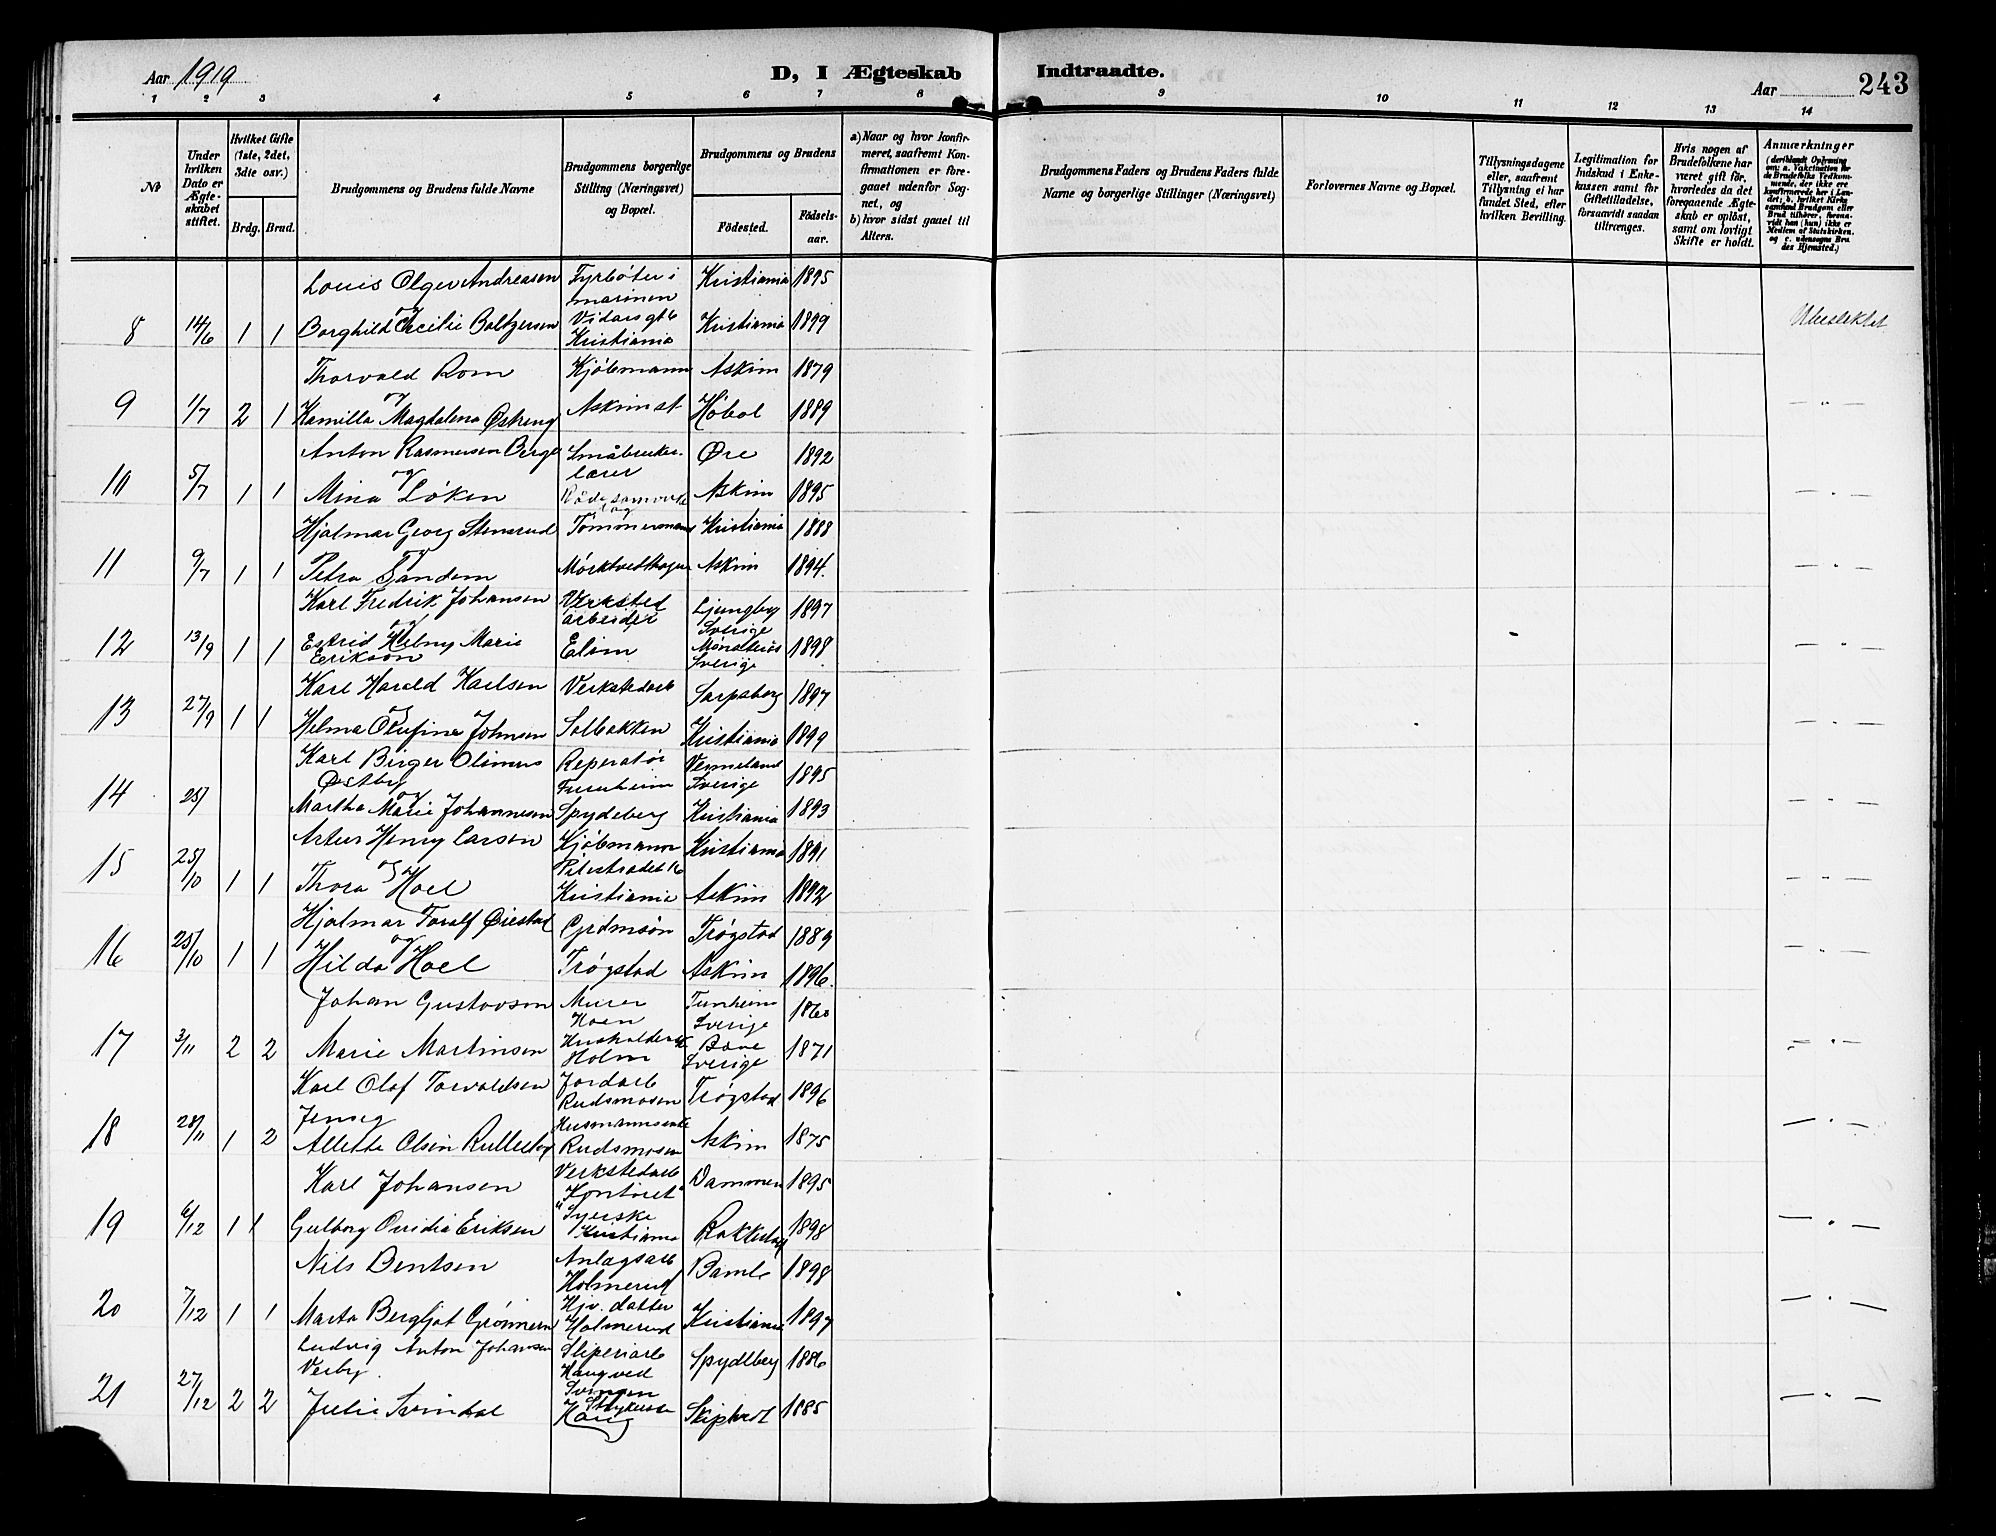 Aar 1919
D, I Ægteskab Indtraadte.
Aar
243
1 2 3 4 5 6 7 8 9 10 11 12 13 14
No
Under hvilken Dato er Ægteskabet stiftet.
Hvilket Gifte (1ste, 2det, 3die osv.)
Brdg. Brud.
Brudgommens og Brudens fulde Navne
Brudgommens borgerlige Stilling (Næringsvei) og Bopæl.
Brudgommens og Brudens
Fødested.
Fødselsaar.
a) Naar og hvor konfirmeret, saafremt Konfirmationen er foregaaet udenfor Sognet, og
b) hvor sidst gaaet til Alters.
Brudgommens Faders og Brudens Faders fulde Navne og borgerlige Stillinger (Næringsvei)
Forlovernes Navne og Bopæl.
Tillysningsdagene eller, saafremt Tillysning ei har fundet Sted, efter hvilken Bevilling.
Legitimation for Indskud i Enkekassen samt for Giftetilladelse, forsaavidt saadan tiltrænges.
Hvis nogen af Brudefolkene har været gift før, hvorledes da det foregaaende Ægteskab er opløst, samt om lovligt Skifte er holdt.
Anmærkninger (deriblandt Oplysning om: a. Vaksination for de Brudefolks Vedkommende, der ikke ere konfirmerede her i Landet; b. hvilket Kirkesamfund Brudgom eller Brud tilhører, forsaavidt han (hun) ikke er Medlem af Statskirken, og c. udensogns Brudes Hjemsted.)
Louis Olger Andreasen Fyrbøter i Kristiania 1895
marinen
8 14/6 1 1 og Borghild Cecilie Baltzersen Vidarsgt 6 Kristiania 1899 Ubeslektet
Kristiania
Thorvald Rom Kjøbmann Askim 1879
9 1/7 2 1 og Kamilla Magdalena Østreng Askim st Høbøl 1889 — " —
Anton Rasmussen Berge Småbruker- Øre 1892
lærer
10 5/7 1 1 og Mina Løken Askim 1895 — " —
Hjalmar Georg Stensrud Tømmermann Kristiania 1888
11 9/7 1 1 og Petra Sandem Askim 1894. — " —
Karl Fredrik Johansen Verksted Ljungby 1897
arbeider Sverige
12 13/9 1 1 og Estrid Helny Marie Elim 1898 — " —
Erikson Sverige
Karl Harald Karlsen Verkstedarb Sarpsborg 1897
13 27/9 1 1 og Helma Olufine Johnsen Solbakken Kristiania 1899 — " —
Karl Birger Olimus Reperatør Vermeland 1895
Østby Furuheim Sverige
14 25/ og Martha Marie Johannesen Spydeberg Kristiania 1893 — " —
Artur Henry Larsen Kjøbmann Kristiania 1891
Pilestrædet 16
15 25/10 1 1 og Thora Hoel Kristiania Askim 1892 — " —
Hjalmar Toralf Øiestad Grdmsøn Trøgstad 1889
16 25/10 1 1 og Hilda Hoel Trøgstad Askim 1896. — " —
Johan Gustavson Murer 1860
Hoen Sverige
17 3/11 2 2 Marie Martinsen Holm Sverige 1871 — " —
Karl Olaf Torvaldsen Jordarb Trøgstad 1896
Rudsmosen
Jenseg
18 28/11 1 2 Allette Olsen Rullestad Rudsmosen Askim 1875 — " —
Karl Johansen Verkstedarb Dammen 1895
"Kontoret"
19 6/12 1 1 Gulborg Ovidia Eriksen Syerske Rakkestad 1898 — " —
Kristiania
Nils Bentsen Anlægsarb Bamle 1898
Holmerud
20 7/12 1 1 Marta Bergljot Grønnern Hjv. datter Kristiania 1897 — " —
Holmerud
Ludvig Anton Johansen Sliperiarb Spydeberg 1886
Verby Haugved
Svingen
21 27/12 2 2 Julie Svindal Strykerske Skiptvedt 1885 — " —
Haug